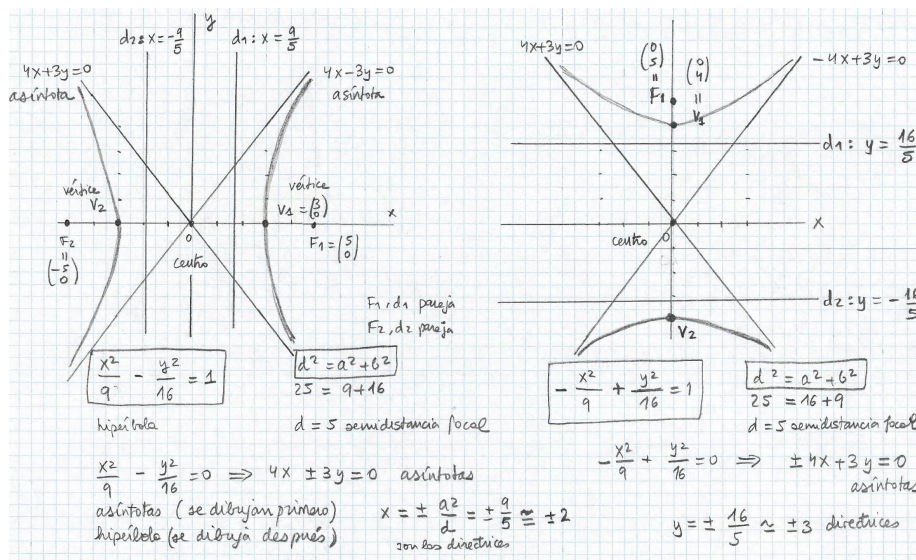 y
d2: x = -9/5
d1: x = 9/5
4x+3y=0
asíntota
4x-3y=0
asíntota
vértice
V2
vértice
V1 = (3 0)
x
F2
=
(-5 0)
0
centro
F1 = (5 0)
F1, d1 pareja
F2, d2 pareja
x²/9 - y²/16 = 1
d² = a²+b²
25 = 9+16
hipérbola
d = 5 semidistancia focal
x²/9 - y²/16 = 0 ⟹ 4x ± 3y = 0 asíntotas
asíntotas (se dibujan primero)
hipérbola (se dibuja después)
x = ± a²/d = ± 9/5 ≃ ±2
son las directrices
4x+3y=0
(0 5)
=
F1
(0 4)
=
V1
-4x+3y=0
d1: y = 16/5
x
0
centro
d2: y = -16/5
V2
-x²/9 + y²/16 = 1
d² = a²+b²
25 = 16+9
d = 5 semidistancia focal
-x²/9 + y²/16 = 0 ⟹ ±4x+3y=0
asíntotas
y = ± 16/5 ≃ ±3 directrices